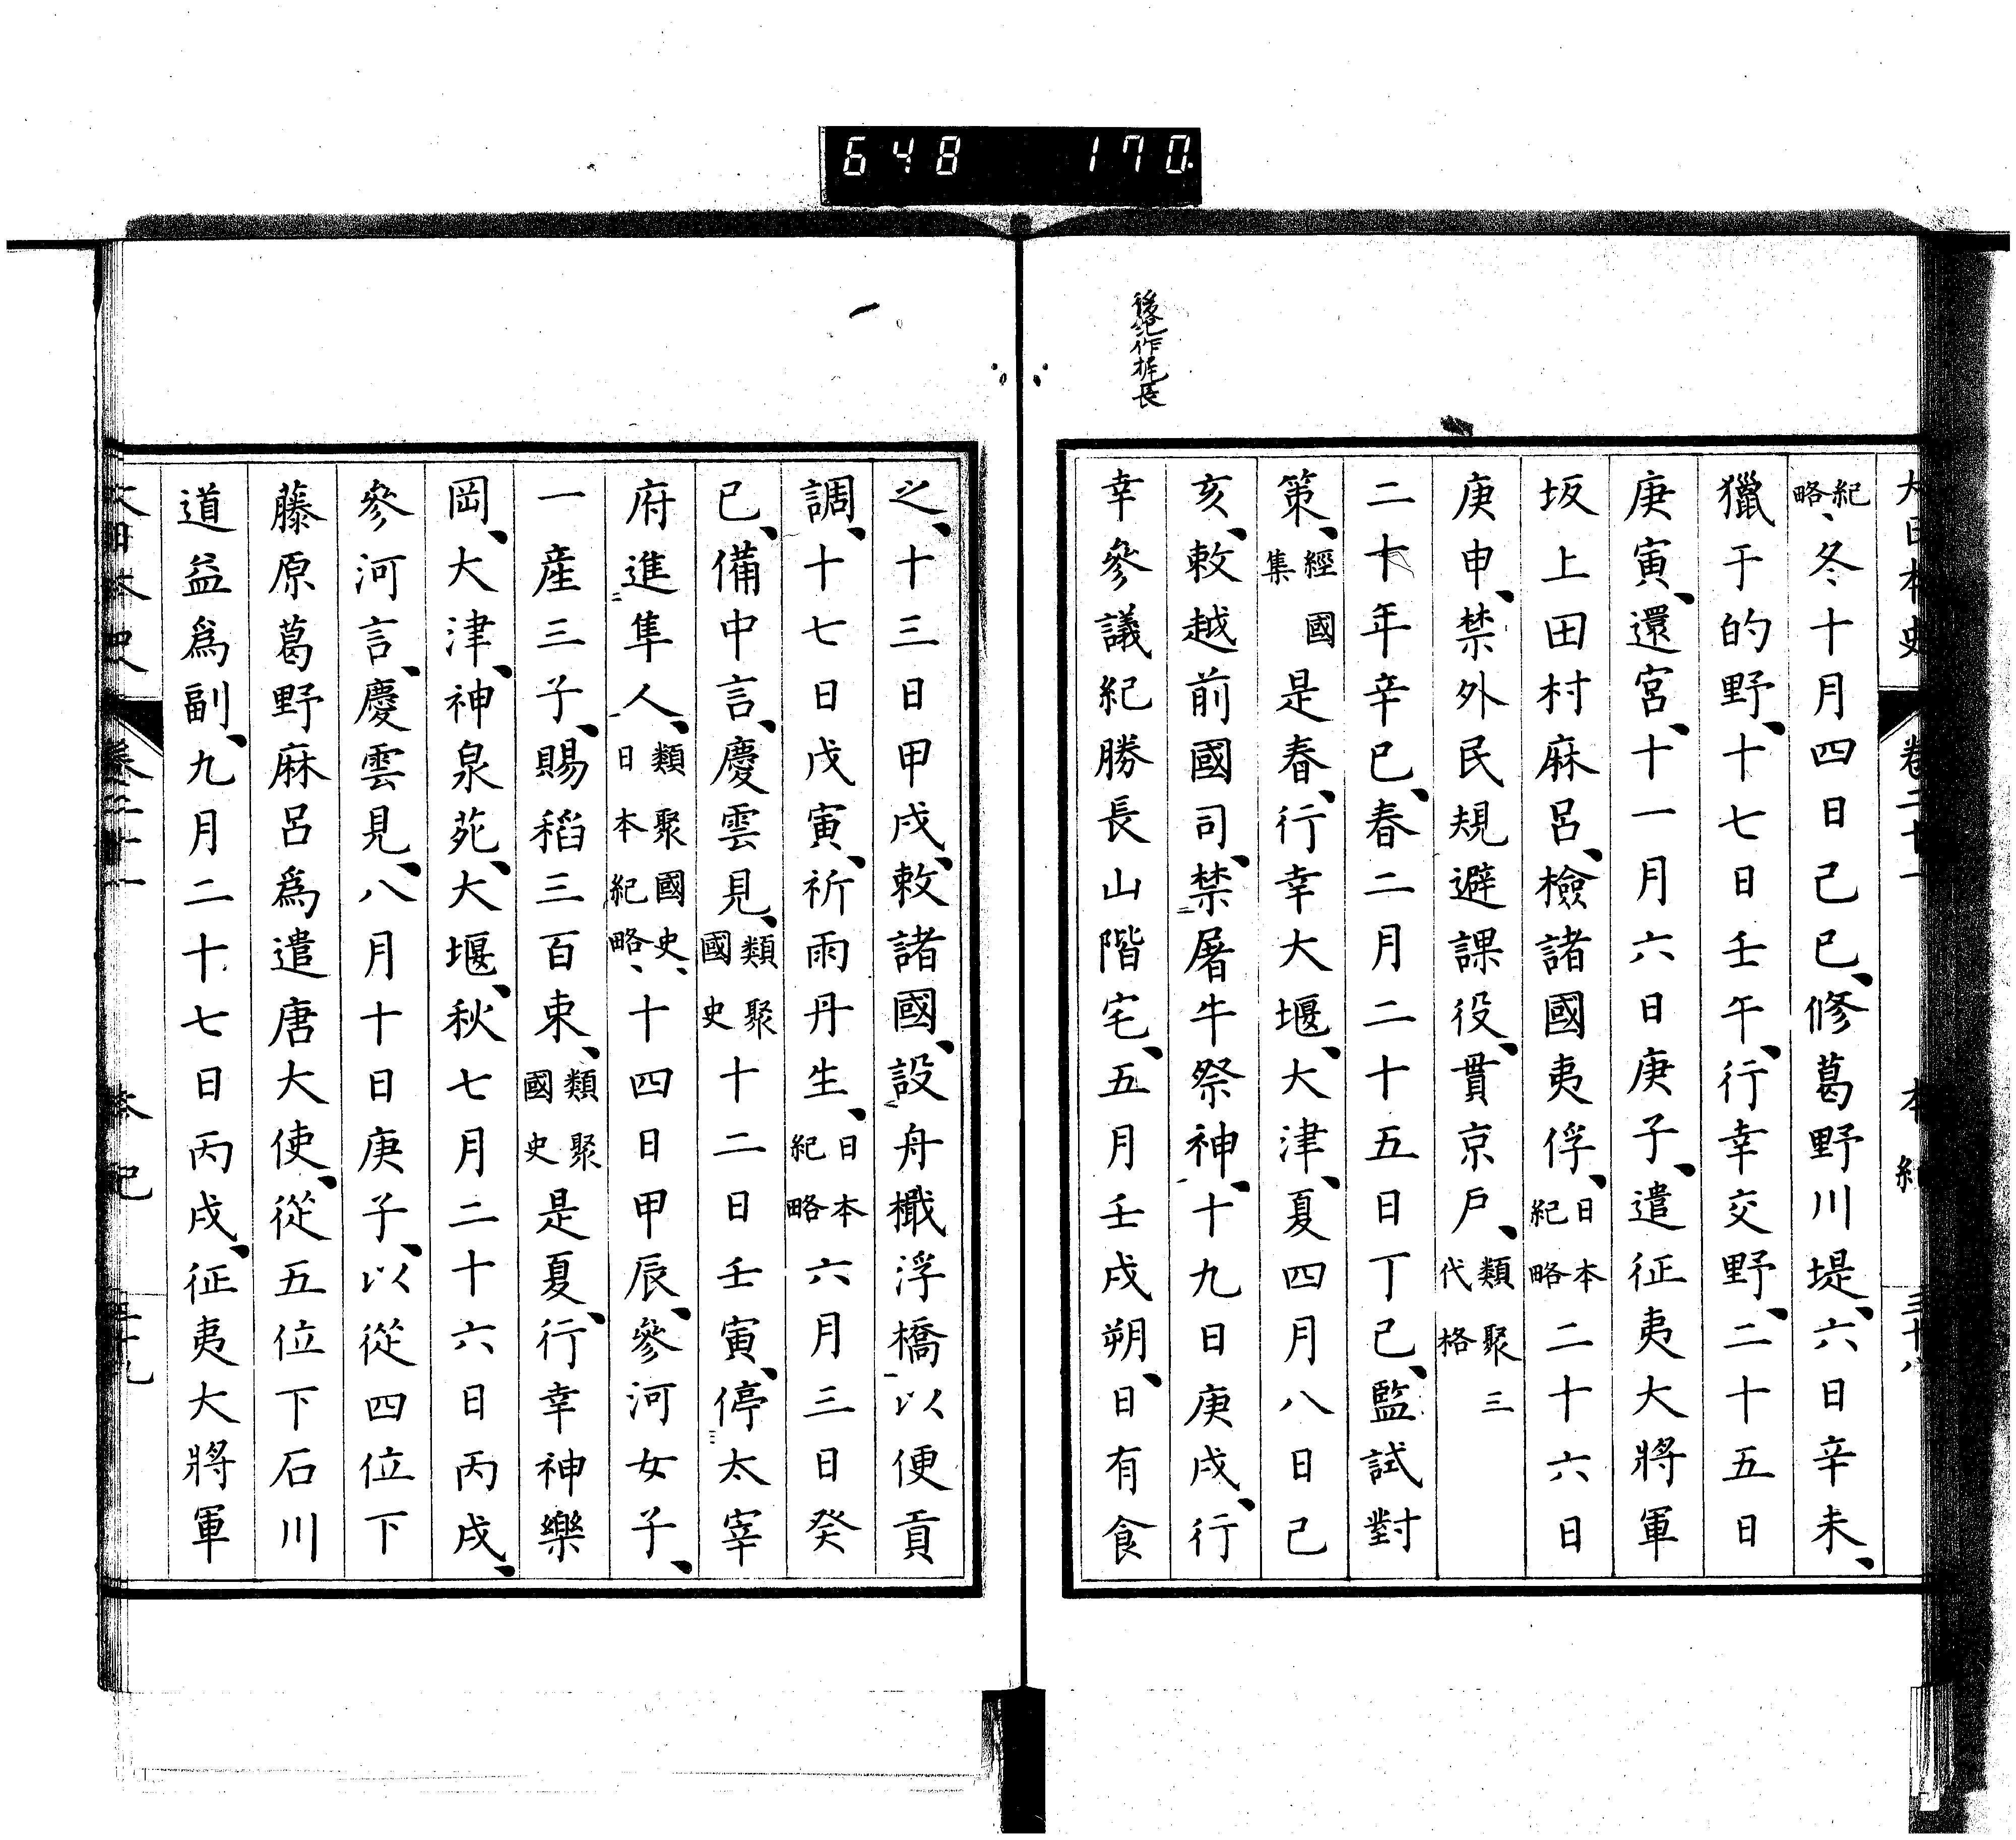 648 170
後紀作梶長
大日本史 卷二十一 本紀 三十八
紀略、冬十月四日己巳、修葛野川堤、六日辛未、
獵于的野、十七日壬午、行幸交野、二十五日
庚寅、還宮、十一月六日庚子、遣征夷大將軍
坂上田村麻呂、檢諸國夷俘、日本紀略二十六日
庚申、禁外民規避課役、貫京戶、類聚三代格
二十年辛巳、春二月二十五日丁巳、監試對
策、經國集是春、行幸大堰、大津、夏四月八日己
亥、敕越前國司、禁屠牛祭神、十九日庚戌、行
幸參議紀勝長山階宅、五月壬戌朔、日有食
之、十三日甲戌、敕諸國、設舟檝浮橋以便貢
調、十七日戊寅、祈雨丹生、日本紀略六月三日癸
巳、備中言、慶雲見、類聚國史十二日壬寅、停太宰
府進隼人、類聚國史、日本紀略、十四日甲辰、參河女子、
一產三子、賜稻三百束、類聚國史是夏、行幸神樂
岡、大津、神泉苑、大堰、秋七月二十六日丙戌、
參河言、慶雲見、八月十日庚子、以從四位下
藤原葛野麻呂爲遣唐大使、從五位下石川
道益爲副、九月二十七日丙戌、征夷大將軍
大日本史 卷二十一 本紀 三十九